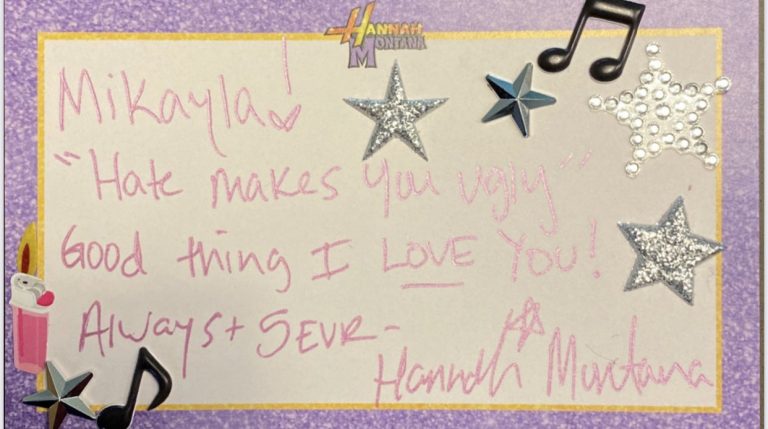 HANNAH
MONTANA
Mikayla!
"Hate makes you ugly"
Good thing I LOVE YOU!
Always + 5EVR -
Hannah Montana